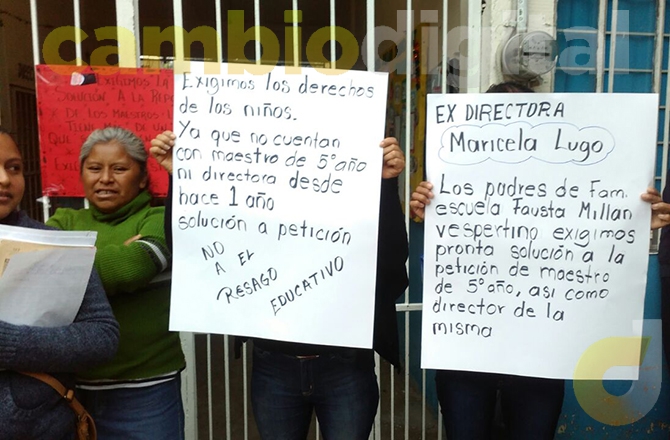 cambiodigital
Exigimos los derechos
de los niños.
Ya que no cuentan
con maestro de 5º año
ni directora desde
hace 1 año
solución a petición
NO
A EL
RESAGO
EDUCATIVO
EX DIRECTORA
Maricela Lugo
Los padres de Fam.
escuela Fausta Millan
vespertino exigimos
pronta solución a la
petición de maestro
de 5º año, así como
director de la
misma
Exigimos la
solución a la Rep
de los maestros
Tiene más de un
que
Exi
d